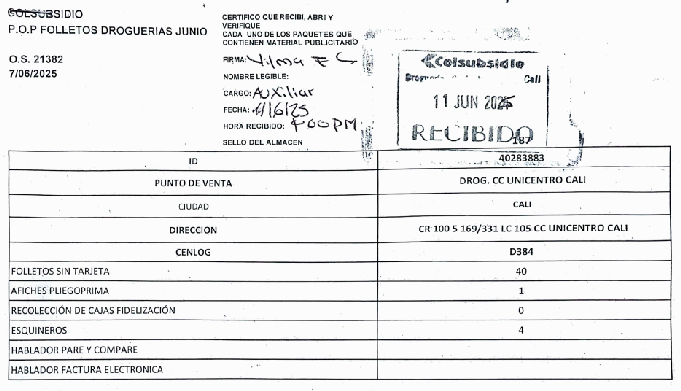 COLSUBSIDIO
P.O.P FOLLETOS DROGUERIAS JUNIO
O.S. 21382
7/06/2025
CERTIFICO QUE RECIBI, ABRI Y
VERIFIQUE
CADA UNO DE LOS PAQUETES QUE
CONTIENEN MATERIAL PUBLICITARIO
FIRMA: Vilma E C
NOMBRE LEGIBLE:
CARGO: Auxiliar
FECHA: 11/6/25
HORA RECIBIDO: 4:00 PM
SELLO DEL ALMACEN
Colsubsidio
Cali
11 JUN 2025
RECIBIDO
167
ID 40283883
PUNTO DE VENTA DROG. CC UNICENTRO CALI
CIUDAD CALI
DIRECCION CR 100 5 169/331 LC 105 CC UNICENTRO CALI
CENLOG D384
FOLLETOS SIN TARJETA 40
AFICHES PLIEGOPRIMA 1
RECOLECCIÓN DE CAJAS FIDELIZACIÓN 0
ESQUINEROS 4
HABLADOR PARE Y COMPARE
HABLADOR FACTURA ELECTRONICA